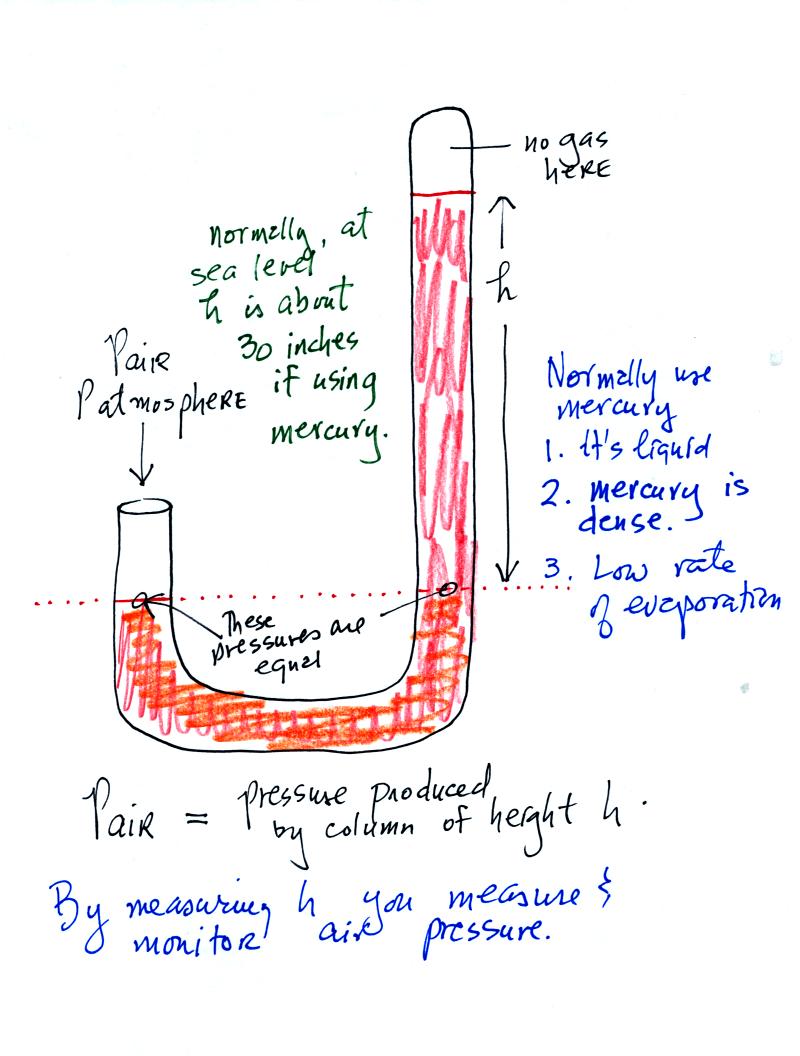 no gas
hERE
normally, at
sea level
h is about
30 inches
if using
mercury.
h
PAIR
PatmosphERE
Normally use
mercury
1. it's liquid
2. mercury is
dense.
3. Low rate
of evaporation
These
pressures are
equal
PAIR = pressure produced
by column of height h.
By measuring h you measure &
monitor air pressure.